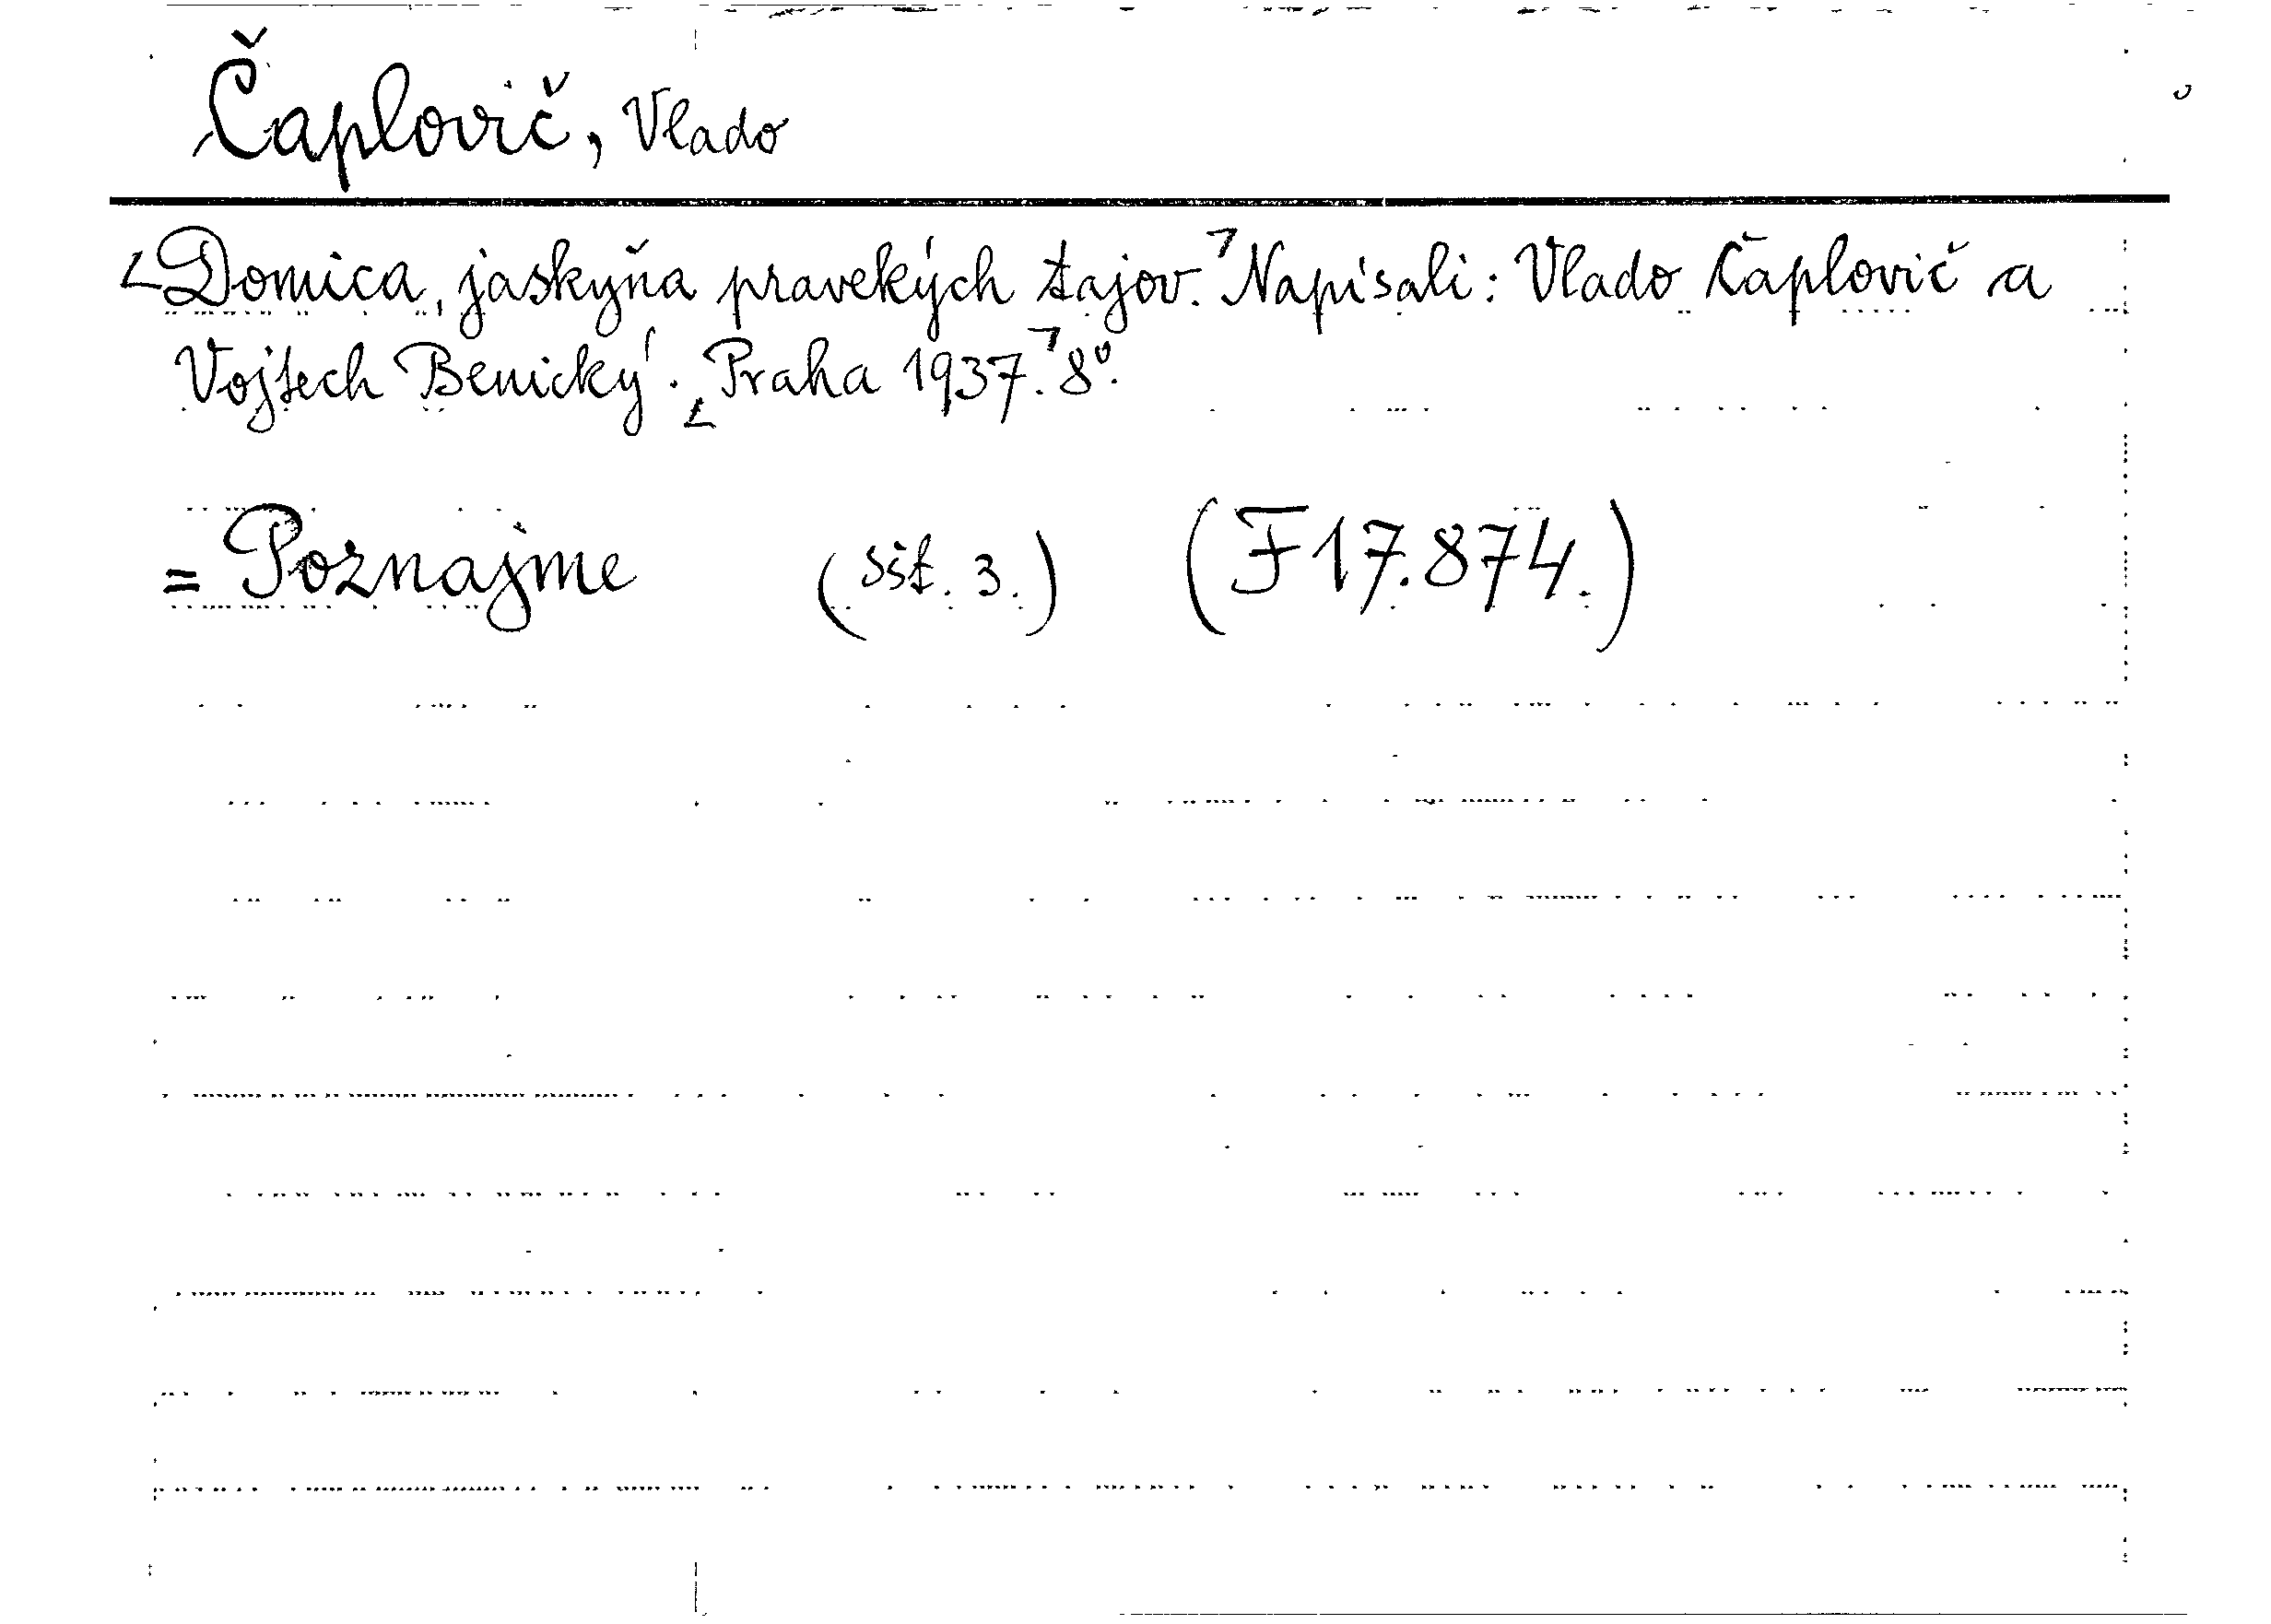 Čaplovič, Vlado
∟Domica, jaskyňa pravekých tajov.⌝ Napísali: Vlado Čaplovič a
Vojtech Benický. ∟Praha 1937.⌝ 8°.
= Poznajme (sšt. 3.) (F 17.874.)